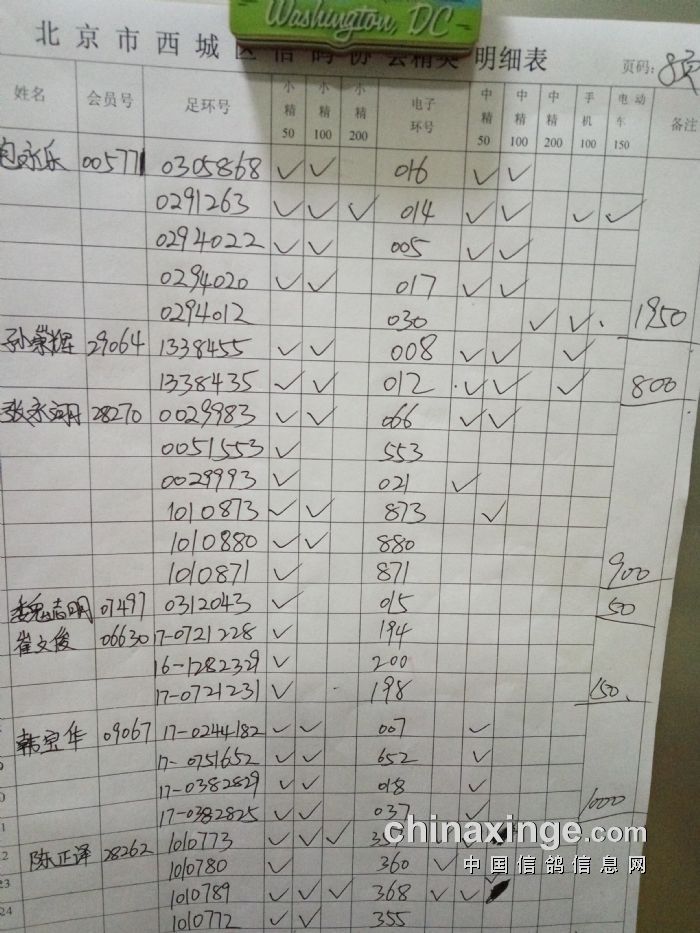 Washington, DC
北京市西城区信鸽协会精英 明细表
页码: 8页
姓名 会员号 足环号 小精50 小精100 小精200 电子环号 中精50 中精100 中精200 手机100 电动车150 备注
包永乐 005771 0305868 ✓ ✓ 016 ✓ ✓
0291263 ✓ ✓ ✓ 014 ✓ ✓ ✓ ✓
0294022 ✓ ✓ 005 ✓ ✓
0294020 ✓ ✓ 017 ✓ ✓
0294012 030 ✓ ✓ 1950
孙崇辉 29064 1338455 ✓ ✓ 008 ✓ ✓ ✓
1338435 ✓ ✓ 012 ✓ ✓ ✓ 800
张永河 28270 0029983 ✓ ✓ 066 ✓ ✓
0051553 ✓ 553
0029993 ✓ 021 ✓
1010873 ✓ ✓ 873 ✓
1010880 ✓ ✓ 880
1010871 ✓ 871 900
魏志明 07497 0312043 ✓ 015 50
崔文俊 06630 17-0721228 ✓ 194
16-1282329 ✓ 200
17-0721231 ✓ 198 150
韩宝华 09067 17-0244182 ✓ ✓ 007 ✓
17-0751652 ✓ ✓ 652 ✓
17-0382829 ✓ ✓ 018 ✓
17-0382825 ✓ ✓ 037 ✓ 1000
22 陈正译 28262 1010773 ✓ ✓ ✓ ✓ ✓
1010780 ✓ 360 ✓
23 1010789 ✓ ✓ ✓ 368 ✓ ✓
24 1010772 ✓ ✓ 355
chinaxinge.com
中国信鸽信息网